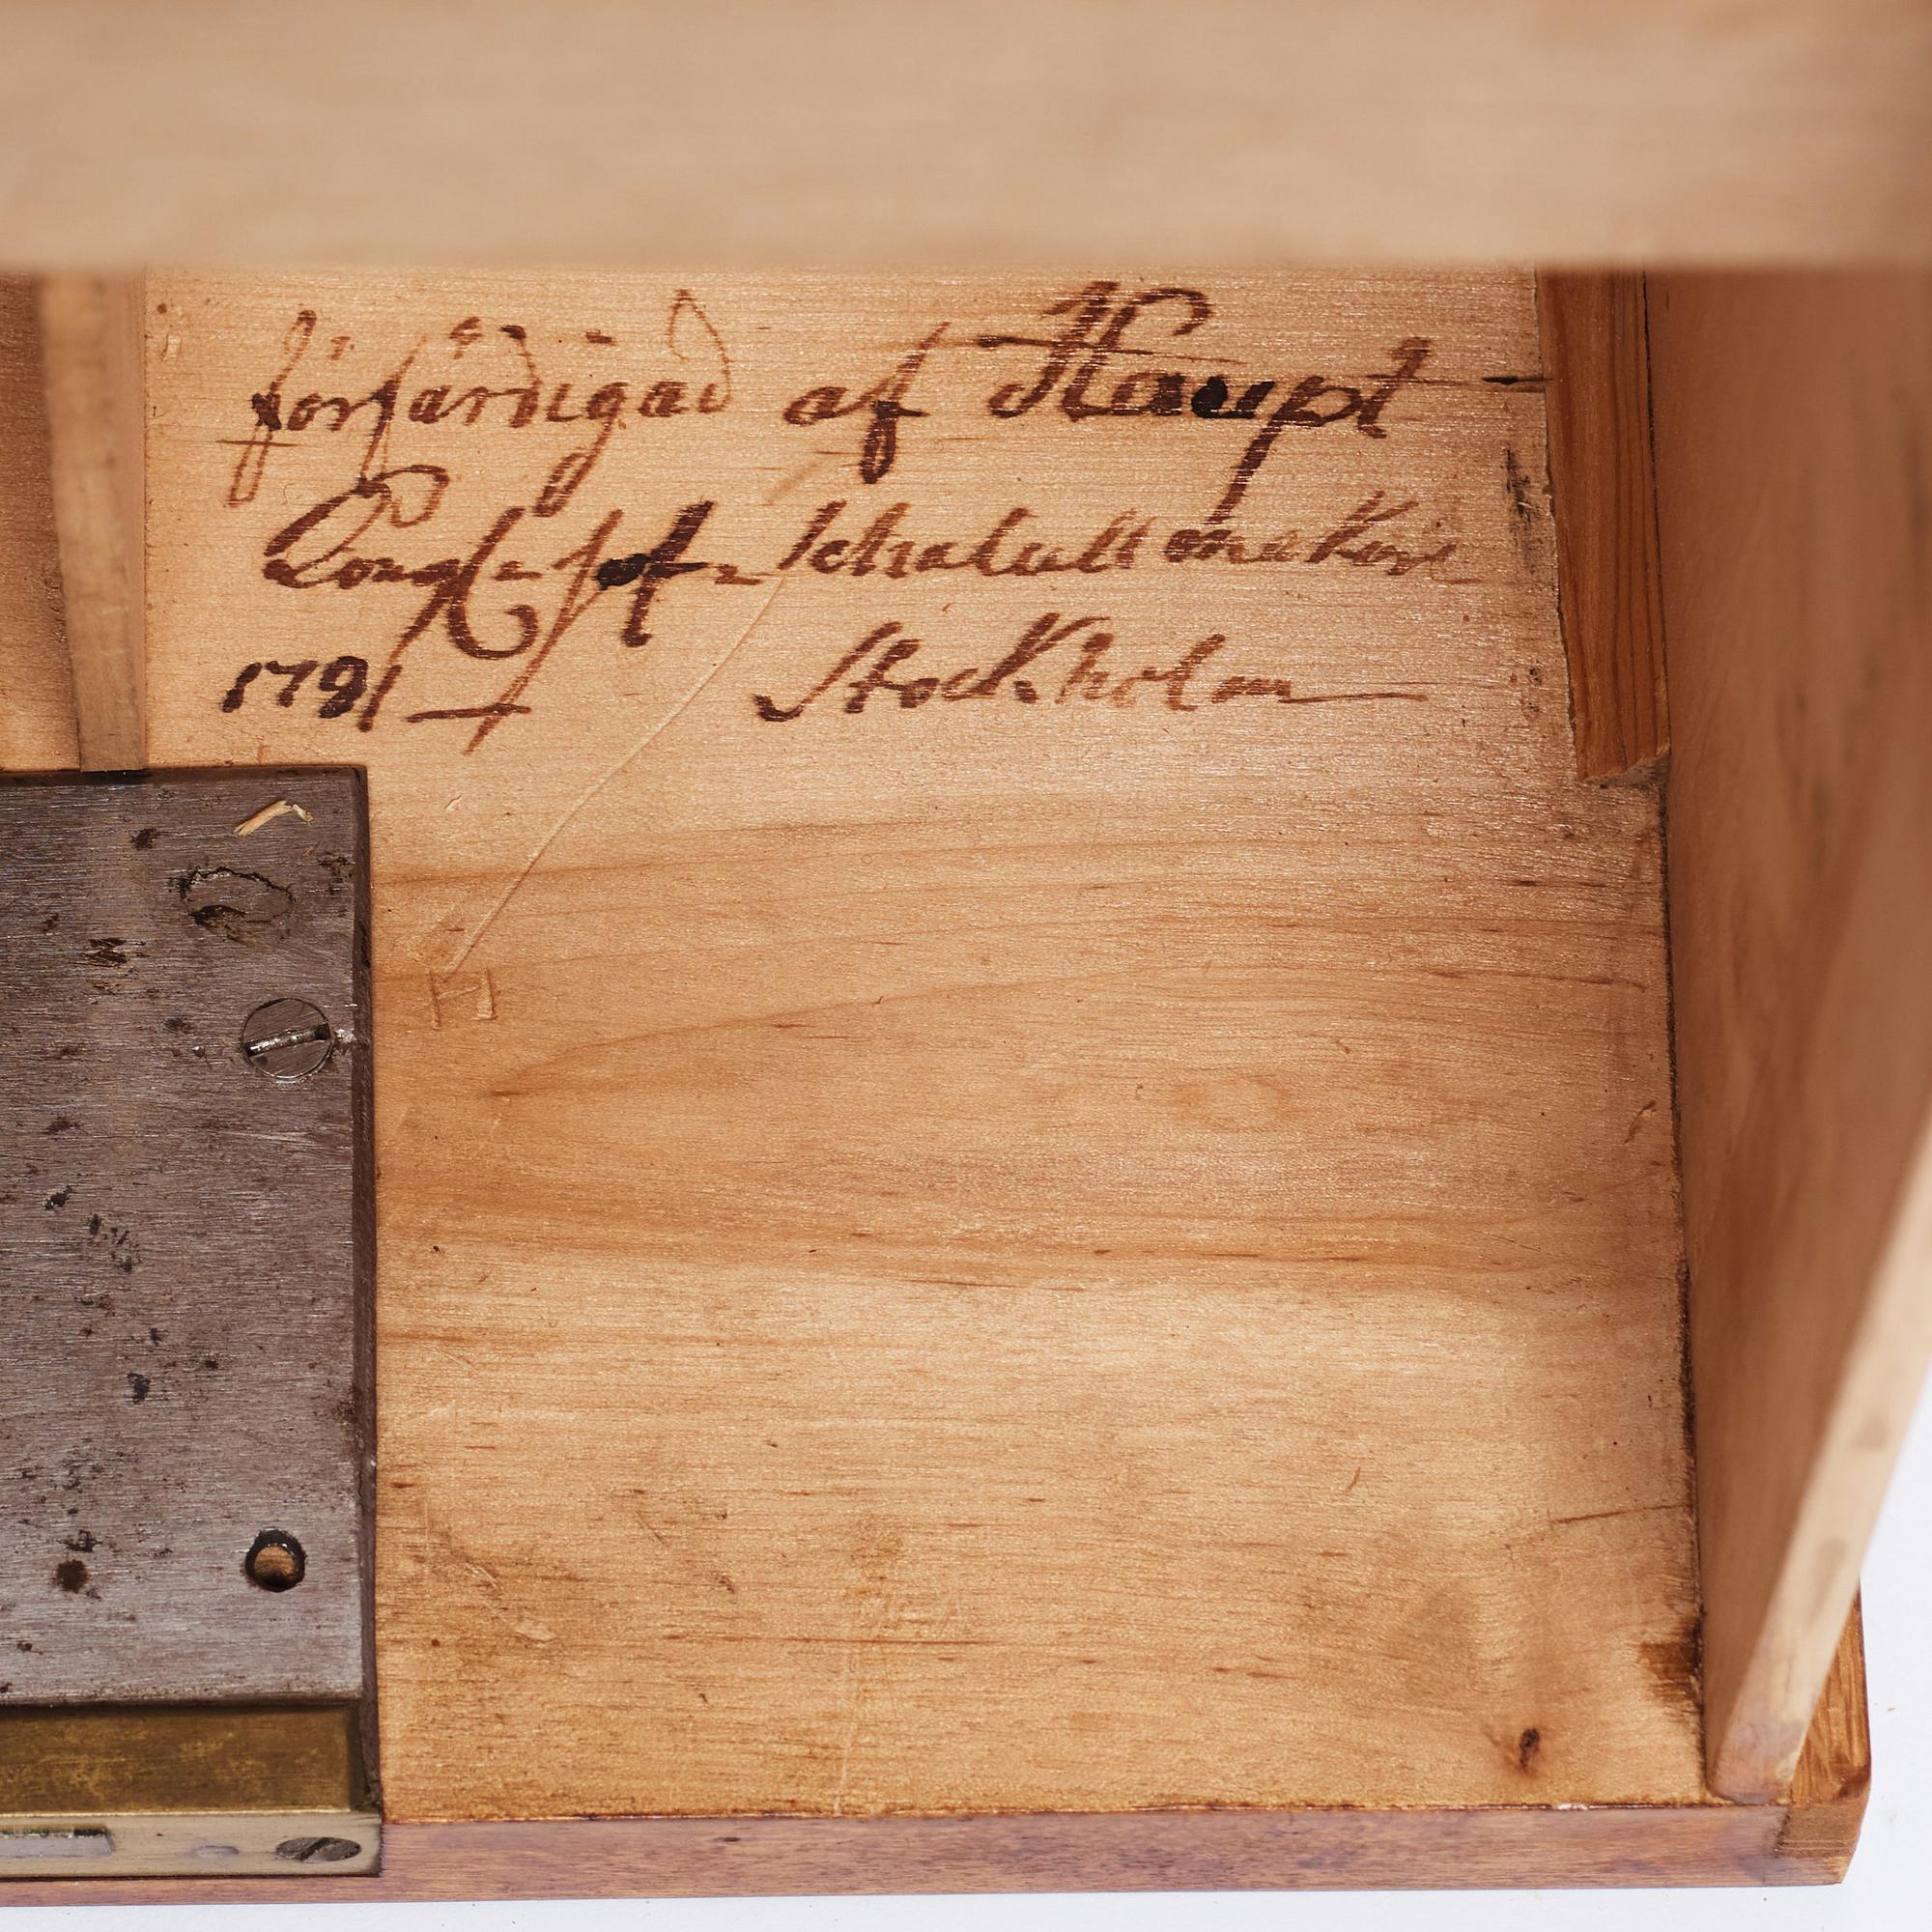 förfärdigad af Haupt
Kongl: Hof- schatull makare
1781 Stockholm